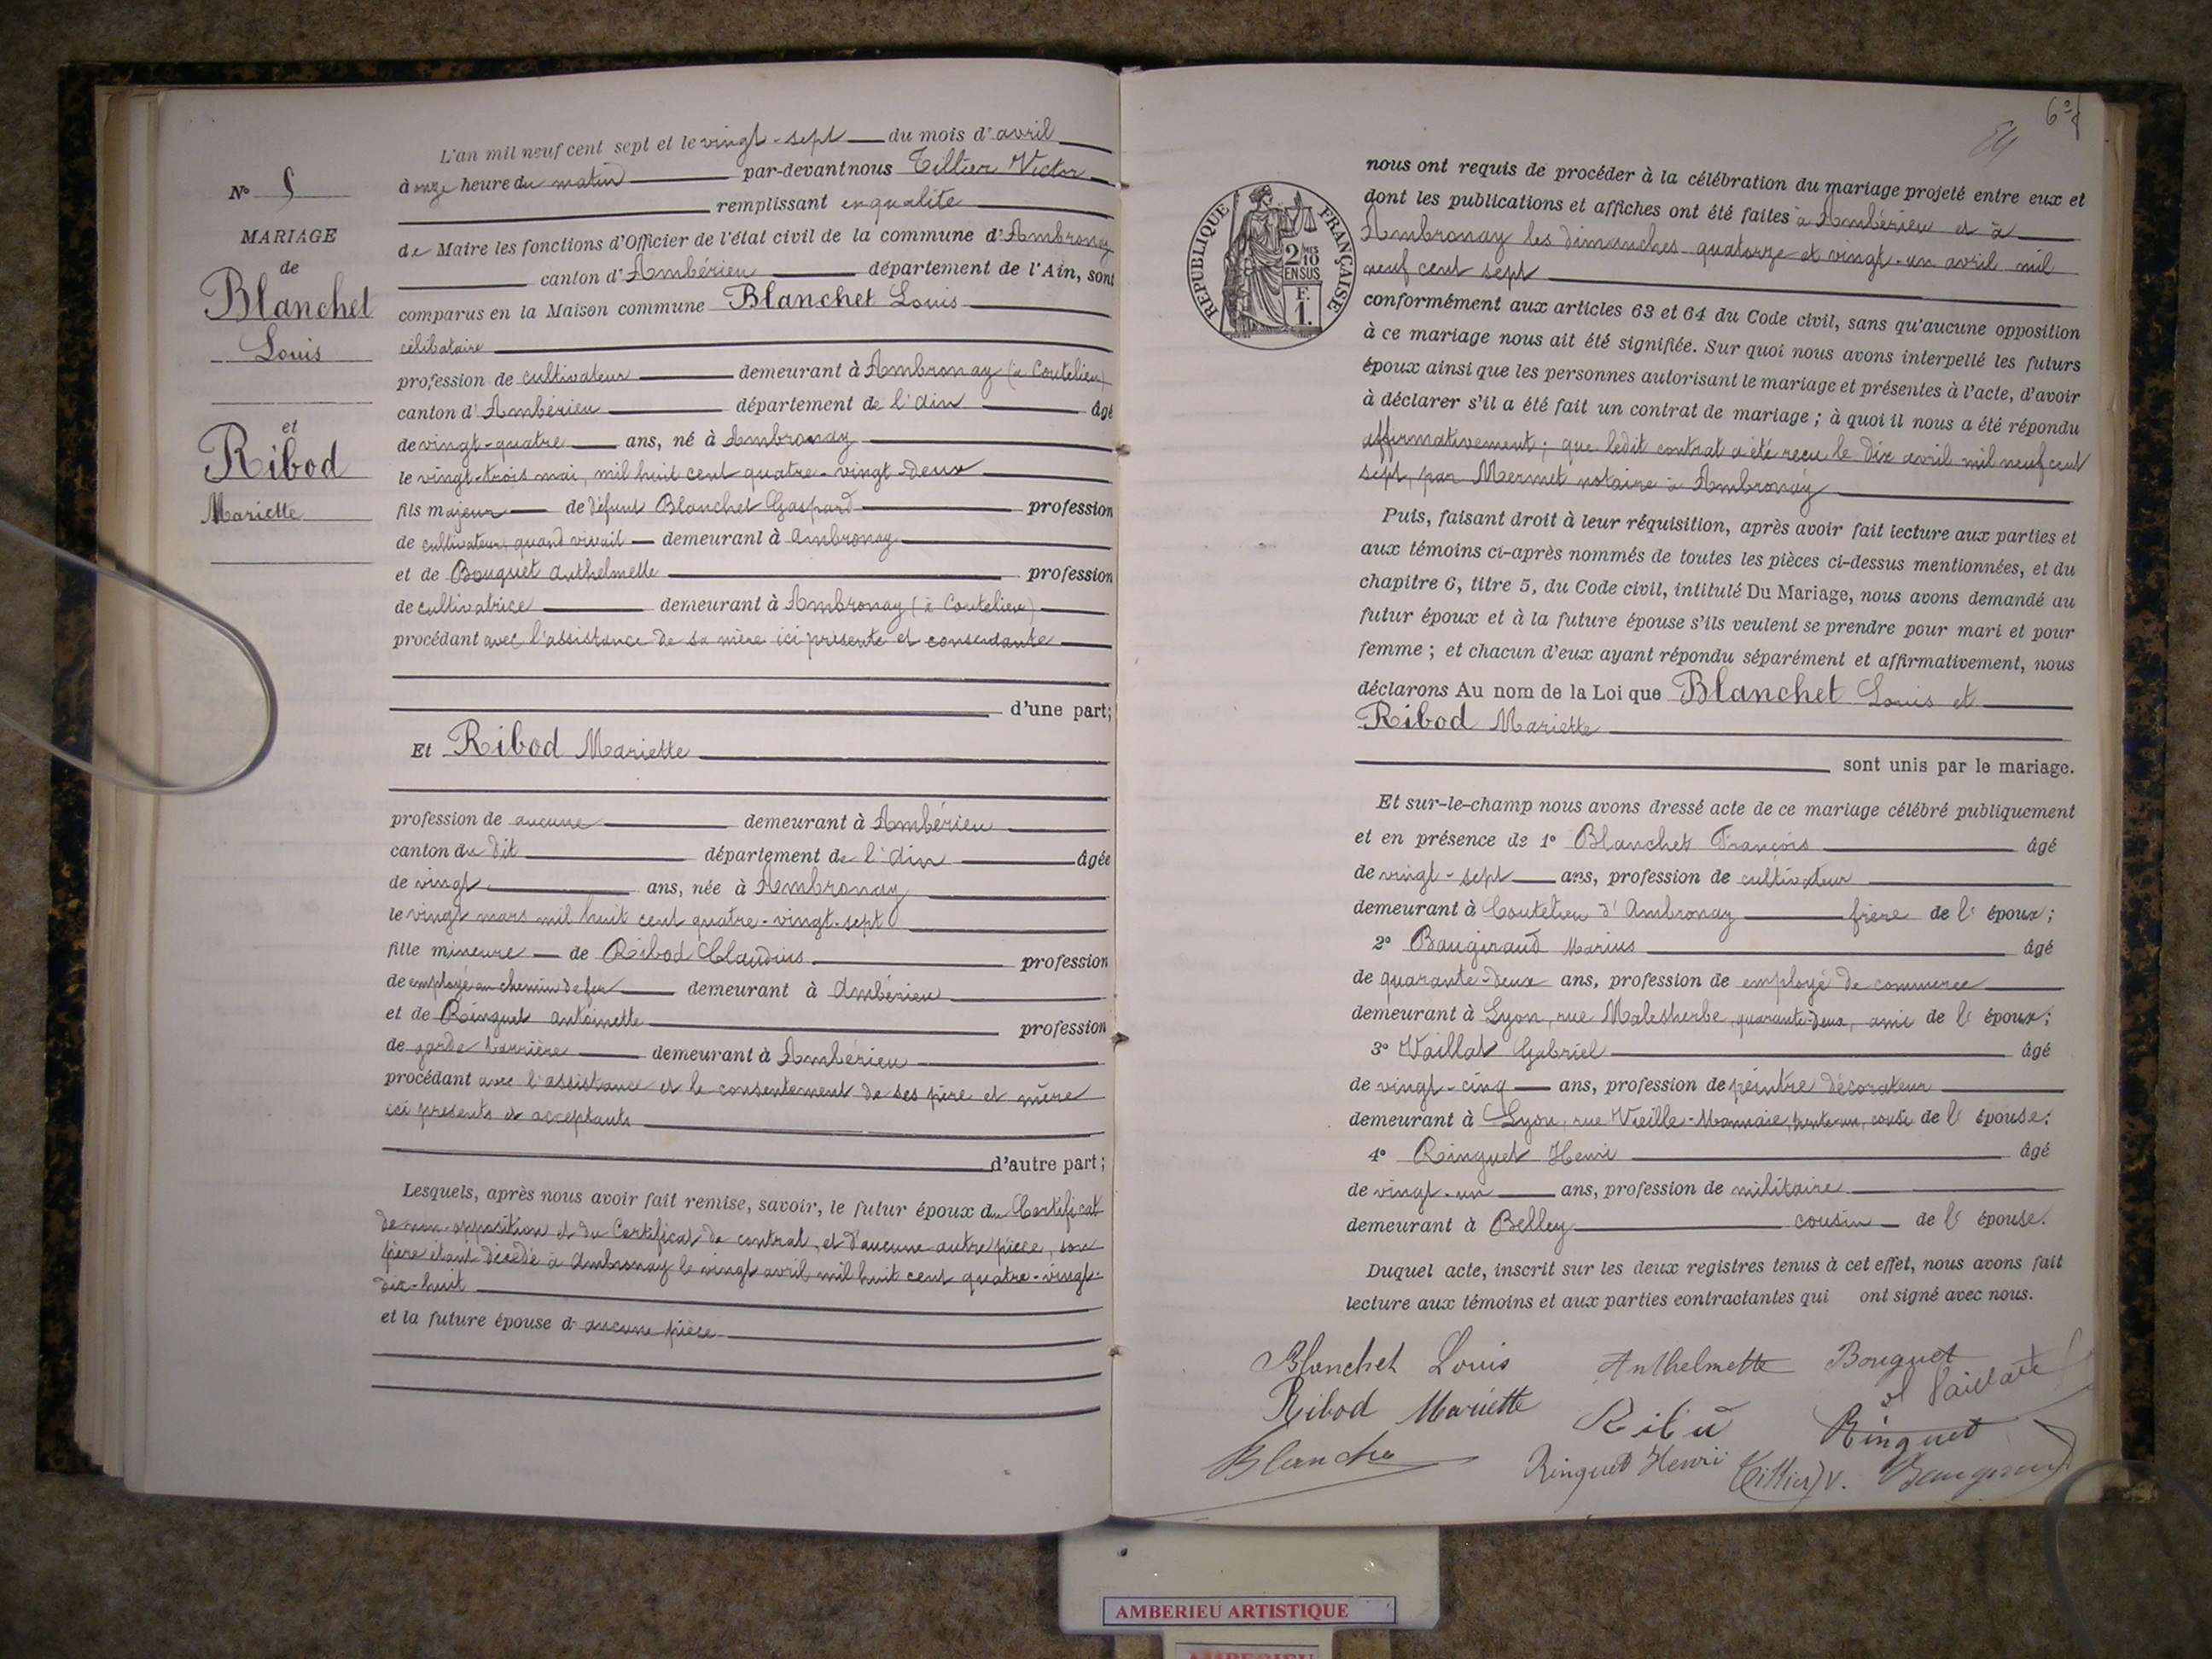 N° 5
MARIAGE
de
Blanchet
Louis
et
Ribod
Mariette
L'an mil neuf cent sept et le vingt-sept du mois d'avril
à onze heure du matin par-devant nous Tillier Victor
remplissant en qualité
de Maire les fonctions d'Officier de l'état civil de la commune d'Ambronay
canton d'Ambérieu département de l'Ain, sont
comparus en la Maison commune Blanchet Louis
célibataire
profession de cultivateur demeurant à Ambronay (à Coutelieu)
canton d'Ambérieu département de l'Ain âgé
de vingt-quatre ans, né à Ambronay
le vingt-trois mai, mil huit cent quatre-vingt-deux
fils majeur de défunt Blanchet Gaspard profession
de cultivateur quand vivait demeurant à Ambronay
et de Bouquet Anthelmette profession
de cultivatrice demeurant à Ambronay (à Coutelieu)
procédant avec l'assistance de sa mère ici présente et consentante
d'une part;
Et Ribod Mariette
profession de aucune demeurant à Ambérieu
canton du dit département de l'Ain âgée
de vingt ans, née à Ambronay
le vingt mars mil huit cent quatre-vingt-sept
fille mineure de Ribod Claudius profession
de employé au chemin de fer demeurant à Ambérieu
et de Ringuet Antoinette profession
de garde barrière demeurant à Ambérieu
procédant avec l'assistance et le consentement de ses père et mère
ici présents et acceptants
d'autre part;
Lesquels, après nous avoir fait remise, savoir, le futur époux du Certificat
de non-opposition et du Certificat de contrat, et d'aucune autre pièce, son
père étant décédé à Ambronay le vingt avril mil huit cent quatre-vingt-
dix-huit
et la future épouse d'aucune pièce
6
RÉPUBLIQUE FRANÇAISE
2/10 MES
EN SUS
F.
1.
nous ont requis de procéder à la célébration du mariage projeté entre eux et
dont les publications et affiches ont été faites à Ambérieu et à
Ambronay les dimanches quatorze et vingt-un avril mil
neuf cent sept
conformément aux articles 63 et 64 du Code civil, sans qu'aucune opposition
à ce mariage nous ait été signifiée. Sur quoi nous avons interpellé les futurs
époux ainsi que les personnes autorisant le mariage et présentes à l'acte, d'avoir
à déclarer s'il a été fait un contrat de mariage; à quoi il nous a été répondu
affirmativement; que ledit contrat a été reçu le dix avril mil neuf cent
sept, par Mermet notaire à Ambronay
Puis, faisant droit à leur réquisition, après avoir fait lecture aux parties et
aux témoins ci-après nommés de toutes les pièces ci-dessus mentionnées, et du
chapitre 6, titre 5, du Code civil, intitulé Du Mariage, nous avons demandé au
futur époux et à la future épouse s'ils veulent se prendre pour mari et pour
femme; et chacun d'eux ayant répondu séparément et affirmativement, nous
déclarons Au nom de la Loi que Blanchet Louis et
Ribod Mariette
sont unis par le mariage.
Et sur-le-champ nous avons dressé acte de ce mariage célébré publiquement
et en présence de 1° Blanchet François âgé
de vingt-sept ans, profession de cultivateur
demeurant à Coutelieu d'Ambronay frère de l'époux;
2° Baugiraud Marius âgé
de quarante-deux ans, profession de employé de commerce
demeurant à Lyon, rue Malesherbe, quarante-deux, ami de l'époux;
3° Vaillat Gabriel âgé
de vingt-cinq ans, profession de peintre décorateur
demeurant à Lyon, rue Vieille-Monnaie, trente-un, de l'épouse;
4° Ringuet Henri âgé
de vingt-un ans, profession de militaire
demeurant à Belley cousin de l'épouse.
Duquel acte, inscrit sur les deux registres tenus à cet effet, nous avons fait
lecture aux témoins et aux parties contractantes qui ont signé avec nous.
Blanchet Louis Anthelmette Bouquet
Ribod Mariette Vaillat
Ringuet
Ringuet Henri Tillier V. Baugiraud
AMBERIEU ARTISTIQUE
AMBERIEU